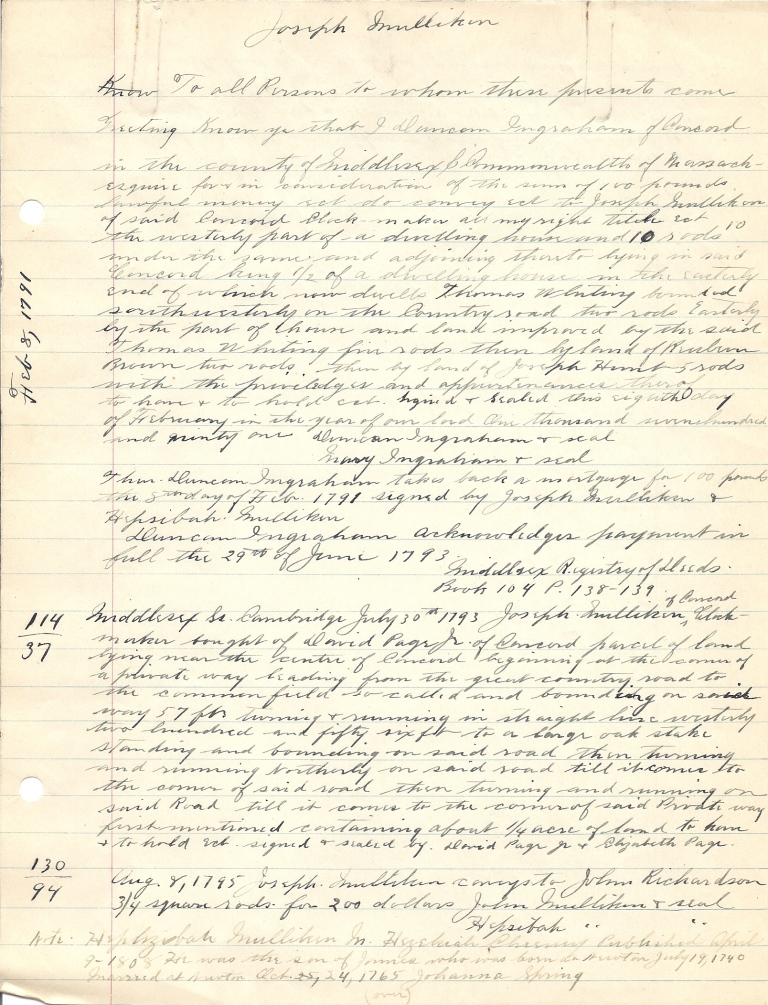 Joseph Mulliken
Know To all Persons to whom these presents come
Greeting Know ye that I Duncan Ingraham of Concord
in the county of Middlesex & Commonwealth of Massach-
esquire for & in consideration of the sum of 100 pounds
lawful money ect do convey ect to Joseph Mulliken
of said Concord Clock-maker all my right title ect
the westerly part of a dwelling house and 10 rods 10
under the same and adjoining thereto lying in said
Concord being 1/2 of a dwelling house in the easterly
end of which now dwells Thomas Whiting bounded
southwesterly on the Country road two rods Easterly
by the part of house and land improved by the said
Thomas Whiting five rods then by land of Reuben
Brown two rods then by land of Joseph Hunt 5 rods
with the priviledges and appurtinances therof
to have & to hold ect. signed & sealed this eighth day
of February in the year of our lord One thousand seven hundred
and ninty one Duncan Ingraham & seal
Mary Ingraham & seal
Feb 8, 1791
Then Duncan Ingraham takes back a mortgage for 100 pounds
the 8 day of Feb. 1791 signed by Joseph Mulliken &
Hepsibah Mulliken
Duncan Ingraham acknowledges payment in
full the 29th of June 1793
Middlesex Registry of Deeds.
Book 104 P. 138-139
114
37
Middlesex Ss. Cambridge July 30th 1793 Joseph Mulliken of Concord, Clock-
maker bought of David Page Jr. of Concord parcel of land
lying near the centre of Concord beginning at the corner of
a private way leading from the great country road to
the common field so called and bounding on said
way 57 fts turning & running in straight line westerly
two hundred and fifty six ft to a large oak stake
standing and bounding on said road then turning
and running Northerly on said road till it comes to
the corner of said road then turning and running on
said Road till it comes to the corner of said Private way
first mentioned containing about 1/4 acre of land to have
& to hold ect. signed & sealed by. David Page Jr & Elizabeth Page.
130
94
Aug. 8, 1795 Joseph Mulliken conveys to John Richardson
3/4 square rods for 200 dollars John Mulliken & seal
Hepsibah " "
Note: Hephzibah Mulliken m. Hezekiah Cheeney Published April
9-1808 He was the son of James who was born in Newton July 19, 1740
Married at Newton Oct. 25, 24, 1765 Johanna Spring
(over)